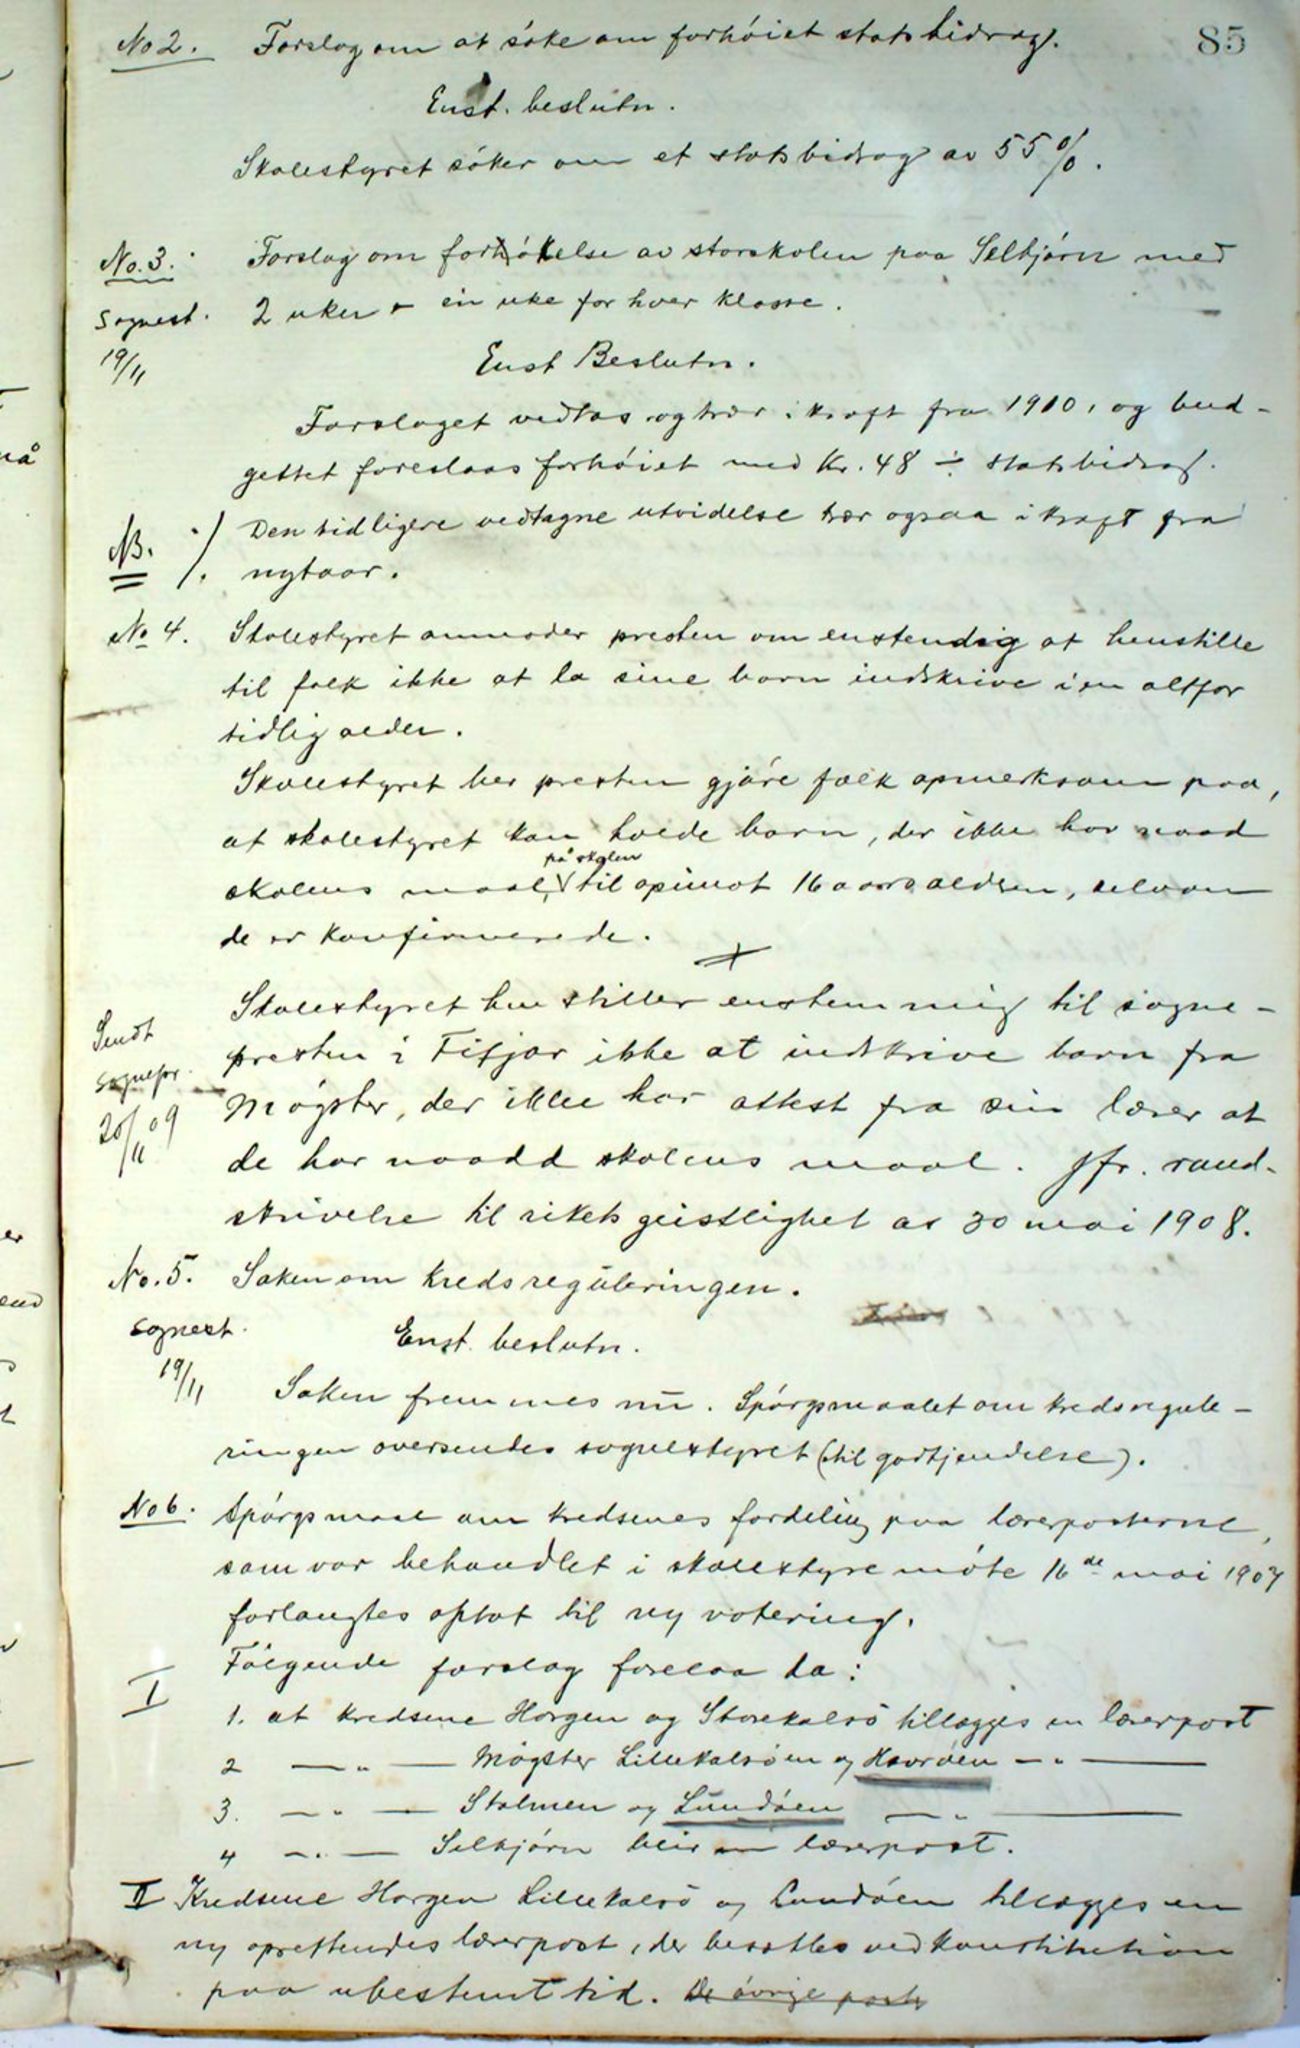 85
No 2. Forslag om at søke om forhøiet statsbidrag.
Enst. beslutn.
Skolestyret søker om et statsbidrag av 55 %.
No. 3. Forslag om forhøkelse av storskolen paa Selbjørn med
Sognest. 2 uker - én uke for hver klasse.
19/11
Enst Beslutn.
Forslaget vedtas og trær i kraft fra 1910, og bud-
gettet foreslaas forhøiet med Kr. 48 ÷ statsbidrag.
NB. ·/. Den tidligere vedtagne utvidelse trær ogsaa i kraft fra
nytaar.
No 4. Skolestyret anmoder presten om enstendig at henstille
til folk ikke at la sine barn indskrive i en altfor
tidlig alder.
Skolestyret ber presten gjøre folk opmerksom paa,
at skolestyret kan holde barn, der ikke har naad
på skolen
skolens maal, til opimot 16 aars alderen, selvom
de er konfirmerede.
Skolestyret henstiller enstemmig til sogne-
Sendt
presten i Fitjar ikke at indskrive barn fra
sognepr.
Møgster, der ikke har attest fra sin lærer at
20/11 09
de har naadd skolens maal. Jfr. rund-
skrivelse til rikets geistlighet av 30 mai 1908.
No. 5. Saken om kredsreguleringen.
Sognest. Enst. beslutn.
19/11 Saken fremmes nu. Spørgsmaalet om kredsregule-
ringen oversendes sognestyret (til godkjendelse).
No 6. Spørgsmaal om kredsenes fordeling paa lærerposterne,
som var behandlet i skolestyremøte 16de mai 1907
forlangtes optat til ny votering.
Følgende forslag forelaa da:
I 1. at kredsene Horgen og Storekalsø tillægges en lærerpost
2 — " — Møgster Lillekalsøen og Havrøen — " —
3. — " — Stolmen og Lundøen — " —
4 — " — Selbjørn blir en lærerpost.
II Kredsene Horgen Lillekalsø og Lundøen tillægges en
ny oprettendes lærerpost, der besættes ved konstitution
paa ubestemt tid. De øvrige poste